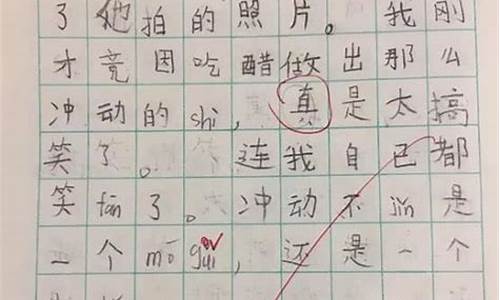 了他拍的照片。我刚
才竟因吃醋做出那么
冲动的shi,真是太搞
笑了。连我自己都
笑fān了。冲动不jǐn是
一个mōguǐ,还是一个